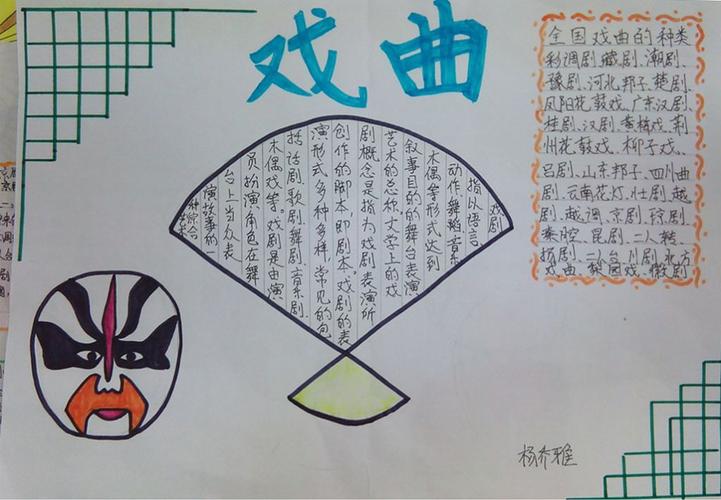 戏曲
戏剧
指以语言、
动作、舞蹈、音乐、
木偶等形式达到
叙事目的的舞台表演
艺术的总称。文学上的戏
剧概念是指为戏剧表演所
创作的脚本，即剧本。戏剧的表
演形式多种多样，常见的包
括话剧、歌剧、舞剧、音乐剧、
木偶戏等。戏剧是由演
员扮演角色在舞
台上当众表
演故事的一
种综合
全国戏曲的种类
彩调剧、藏剧、潮剧、
豫剧、河北邦子、楚剧、
凤阳花鼓戏、广东汉剧、
桂剧、汉剧、黄梅戏、荆
州花鼓戏、柳子戏、
吕剧、山东邦子、四川曲
剧、云南花灯、壮剧、越
剧、越调、京剧、琼剧
秦腔、昆剧、二人转、
扬剧、二人台、川剧、北方
戏曲、梨园戏、徽剧
杨乔雅